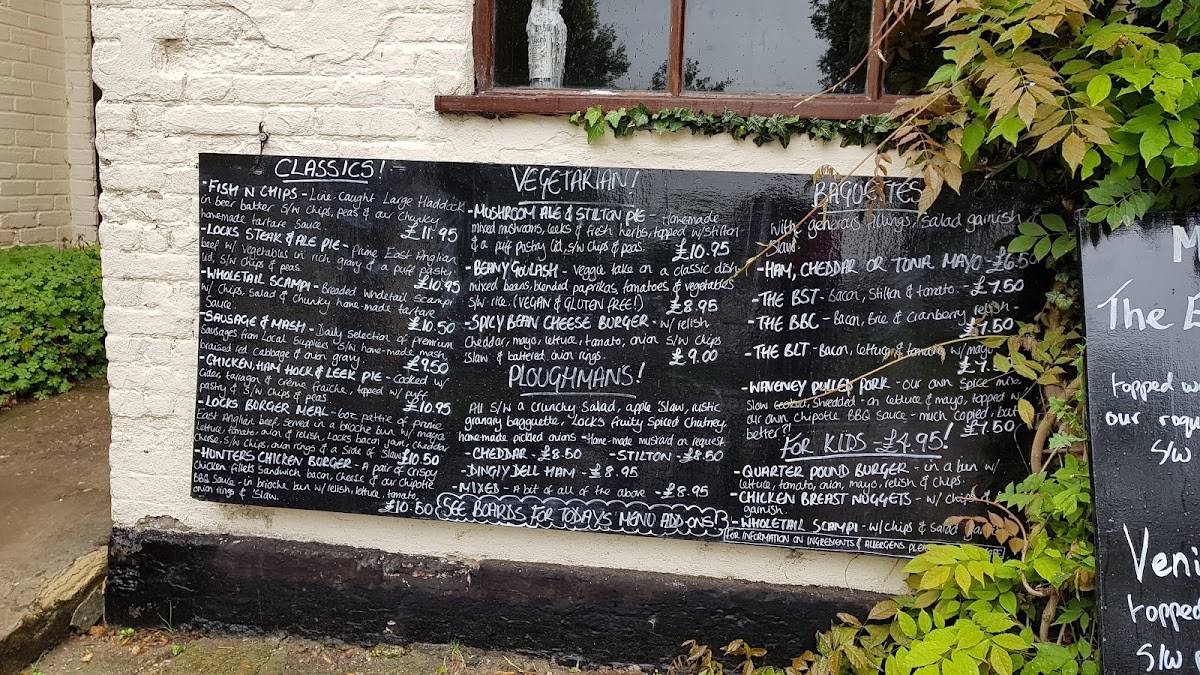 CLASSICS!
-FISH N CHIPS - Line caught Large Haddock
in beer batter S/W chips, peas & our chunky
homemade tartare sauce £11.95
-LOCKS STEAK & ALE PIE - Prime East Anglian
beef w/ vegetables in rich gravy & a puff pastry
lid, S/W chips & peas. £10.95
-WHOLETAIL SCAMPI - Breaded wholetail scampi
w/ chips, salad & chunky home-made tartare
Sauce. £10.50
-SAUSAGE & MASH - Daily Selection of premium
Sausages from Local Suppliers S/W home-made mash,
braised red cabbage & onion gravy. £9.50
-CHICKEN, HAM HOCK & LEEK PIE - Cooked w/
Cider, tarragon & crème fraiche, topped w/ puff
pastry & S/W chips & peas. £10.95
-LOCKS BORGER MEAL - 6oz pattie of prime
East Anglian beef, served in a brioche bun w/ mayo,
lettuce, tomato, onion & relish, Locks bacon jam, cheddar
cheese. S/W chips, onion rings & a side of Slaw £10.50
-HUNTERS CHICKEN BURGER - A pair of crispy
Chicken fillets sandwich bacon, cheese & our chipotle
BBQ Sauce - in brioche bun w/ relish, lettuce, tomato,
onion rings & 'slaw. £10.50
VEGETARIAN!
-MUSHROOM ALE & STILTON PIE - Homemade
mixed mushrooms, leeks & fresh herbs, topped w/ Stilton
& a puff pastry lid, S/W chips & peas. £10.95
-BEANY GOULASH - veggie take on a classic dish,
mixed beans, blended paprikas, tomatoes & vegetables
S/W rice. (VEGAN & GLUTEN FREE!) £8.95
-SPICY BEAN CHEESE BURGER - w/ relish
Cheddar, mayo, lettuce, tomato, onion S/W chips
'Slaw & battered onion rings. £9.00
PLOUGHMANS!
All S/W a crunchy salad, apple 'Slaw, rustic
granary bagguette, 'Locks fruity Spiced Chutney,
home-made pickled onions - Home-made mustard on request
-CHEDDAR - £8.50 -STILTON - £8.50
-DINGLY DELL HAM - £8.95
-MIXED - A bit of all of the above - £8.95
SEE BOARDS FOR TODAYS MENU ADD-ONS!
BAGUETTES
With generous fillings, salad garnish &
Slaw.
-HAM, CHEDDAR OR TUNA MAYO - £6.50
-THE BST - Bacon, Stilton & tomato. - £7.50
-THE BBC - Bacon, Brie & Cranberry relish
£7.50
-THE BLT - Bacon, lettuce & tomato w/ mayo
£7.
-WAVENEY PULLED PORK - our own Spice mix.
Slow cooked, shredded - on lettuce & mayo, topped w/
our own Chipotle BBQ Sauce - much copied, but
better! £7.50
FOR KIDS - £4.95!
-QUARTER POUND BURGER - in a bun w/
lettuce, tomato, onion, mayo, relish & chips.
-CHICKEN BREAST NUGGETS - w/ chips &
garnish.
-WHOLETAIL SCAMPI - w/ chips & salad
FOR INFORMATION ON INGREDIENTS & ALLERGENS PLEA
M
The B
topped w
our
S/W
Veni
topped
S/W